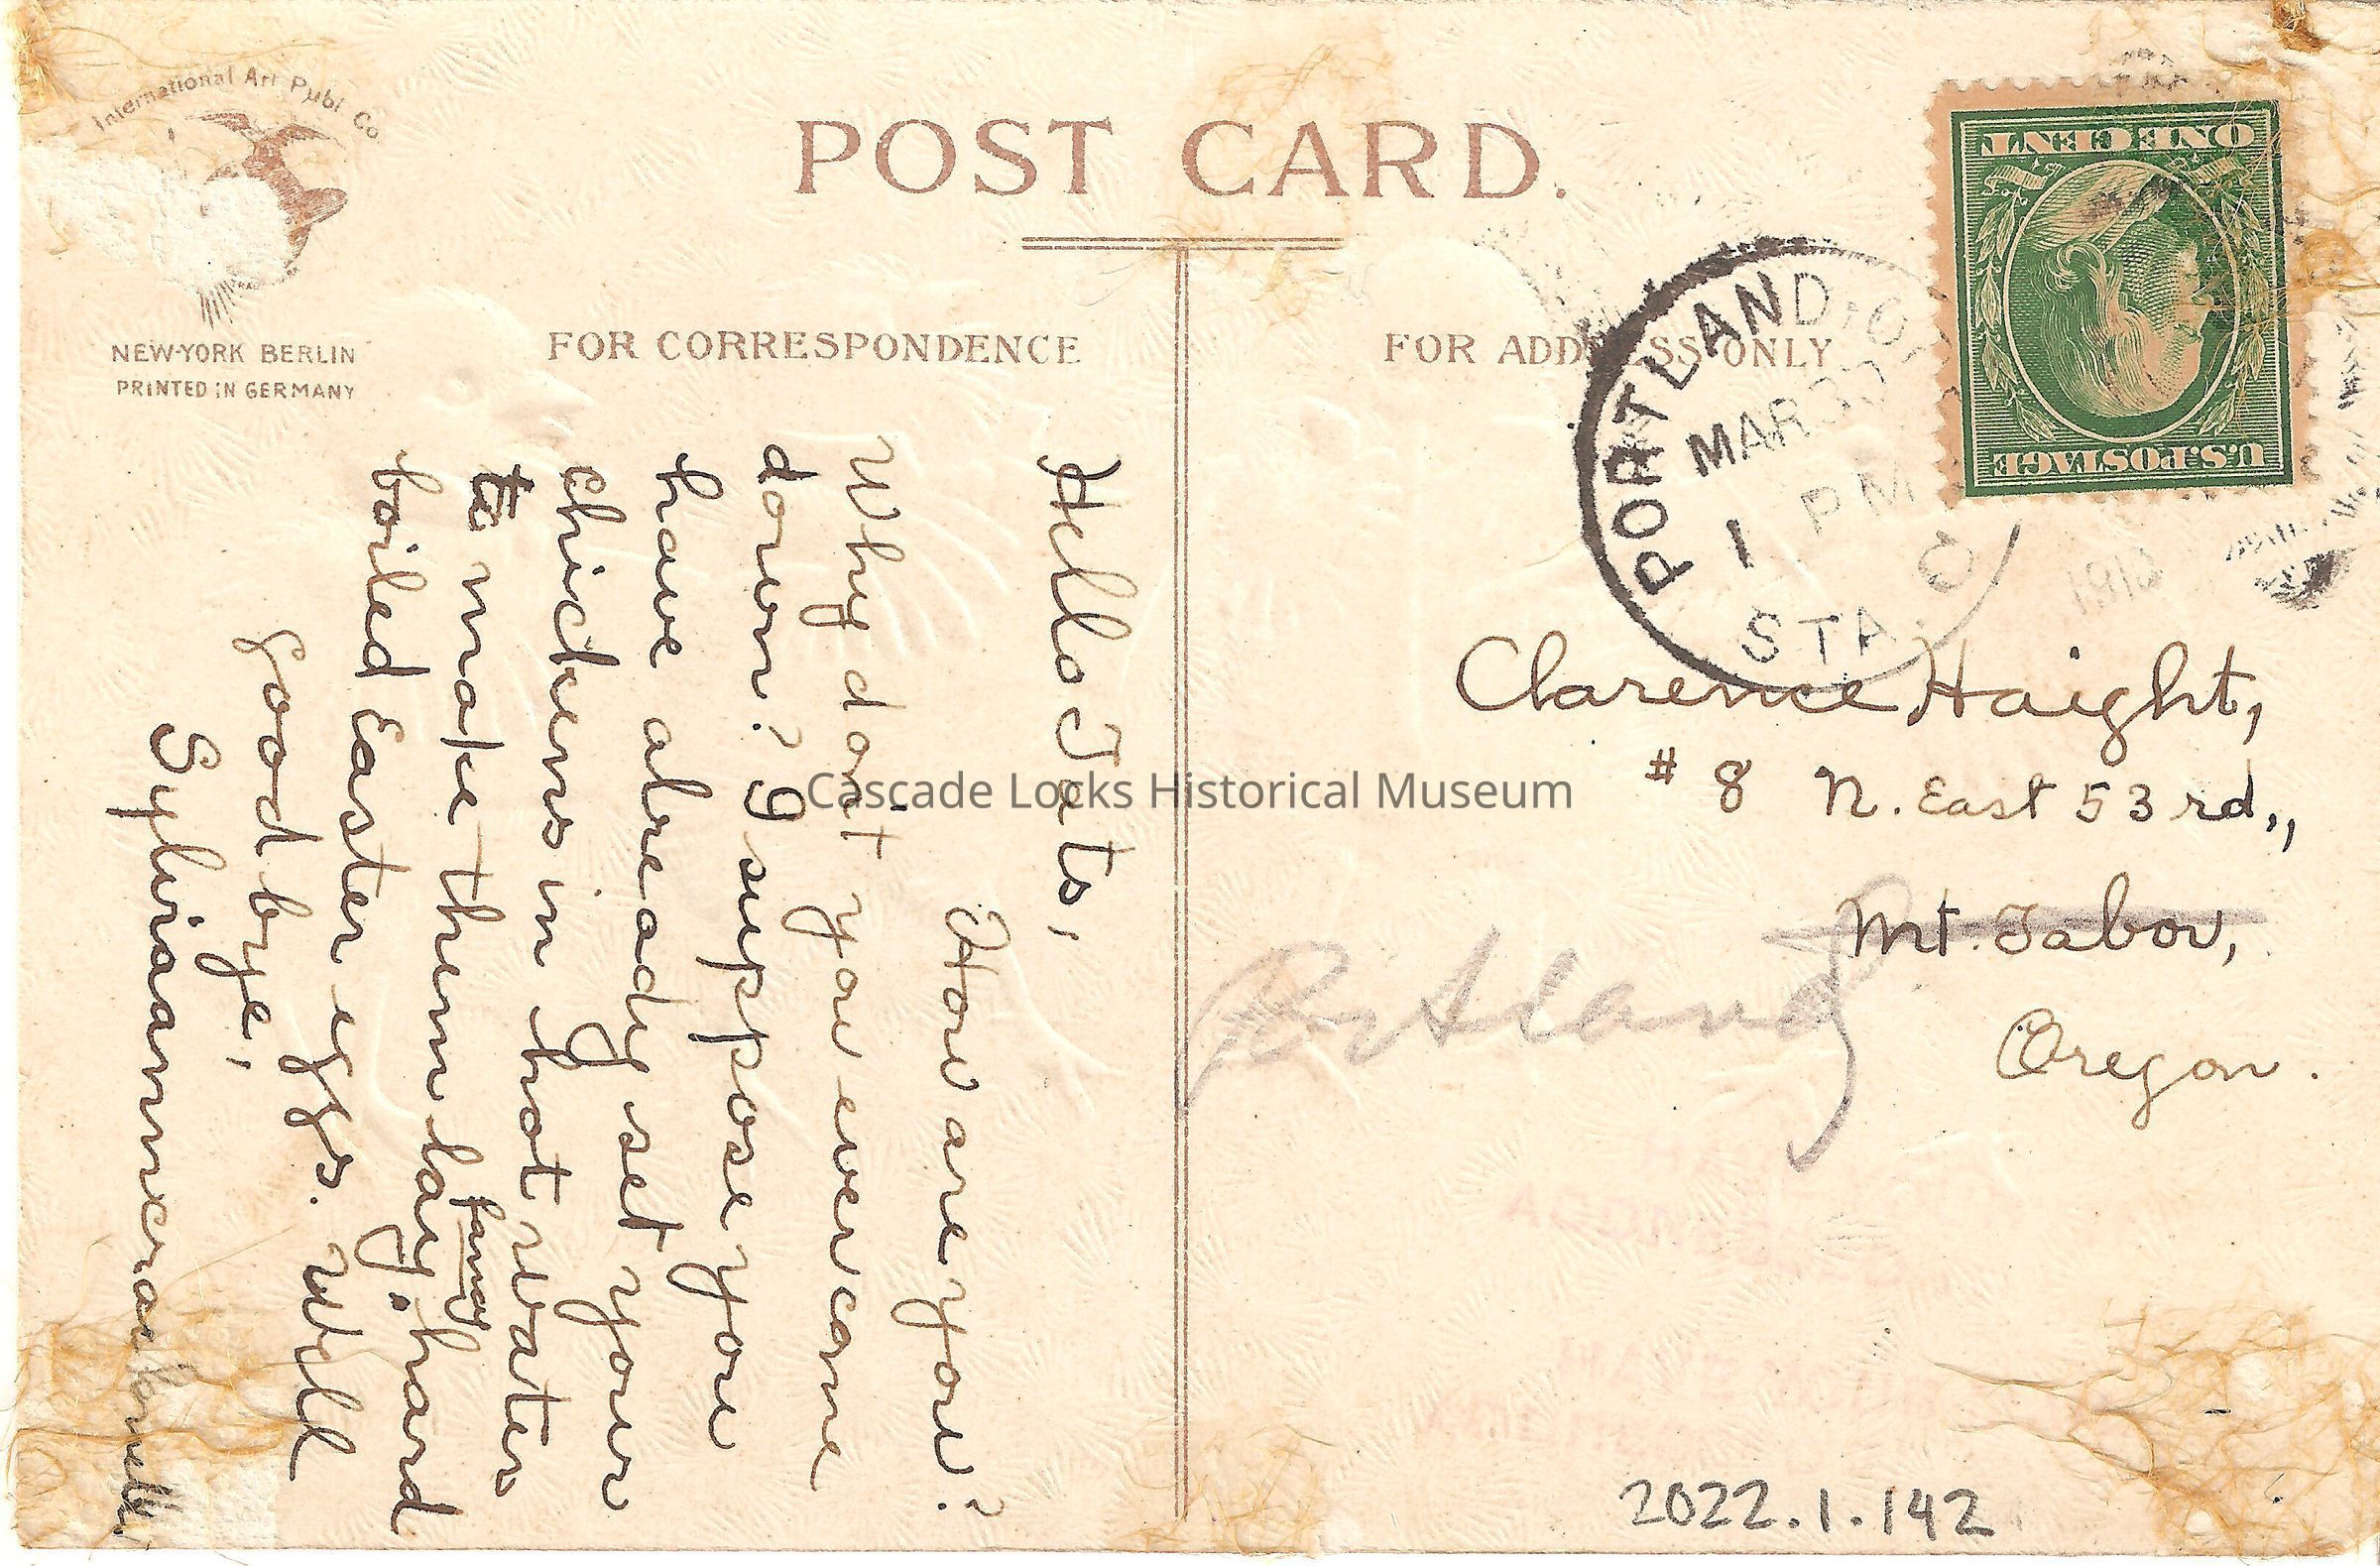 International Art Publ Co
NEW-YORK BERLIN
PRINTED IN GERMANY
POST CARD.
FOR CORRESPONDENCE
FOR ADDRESS ONLY
PORTLAND, OR
MAR 30
1 PM
1910
STA.
ONE CENT
U.S. POSTAGE
Hello Tats,
How are you?
Why don't you ever come
down? I suppose you
have already set your
chickens in hot water
to make them lay fancy hard
boiled Easter eggs. Well
good bye,
Clarence Haight,
# 8 N. East 53rd.,
Mt. Tabor,
Portland
Oregon.
Cascade Locks Historical Museum
2022.1.142